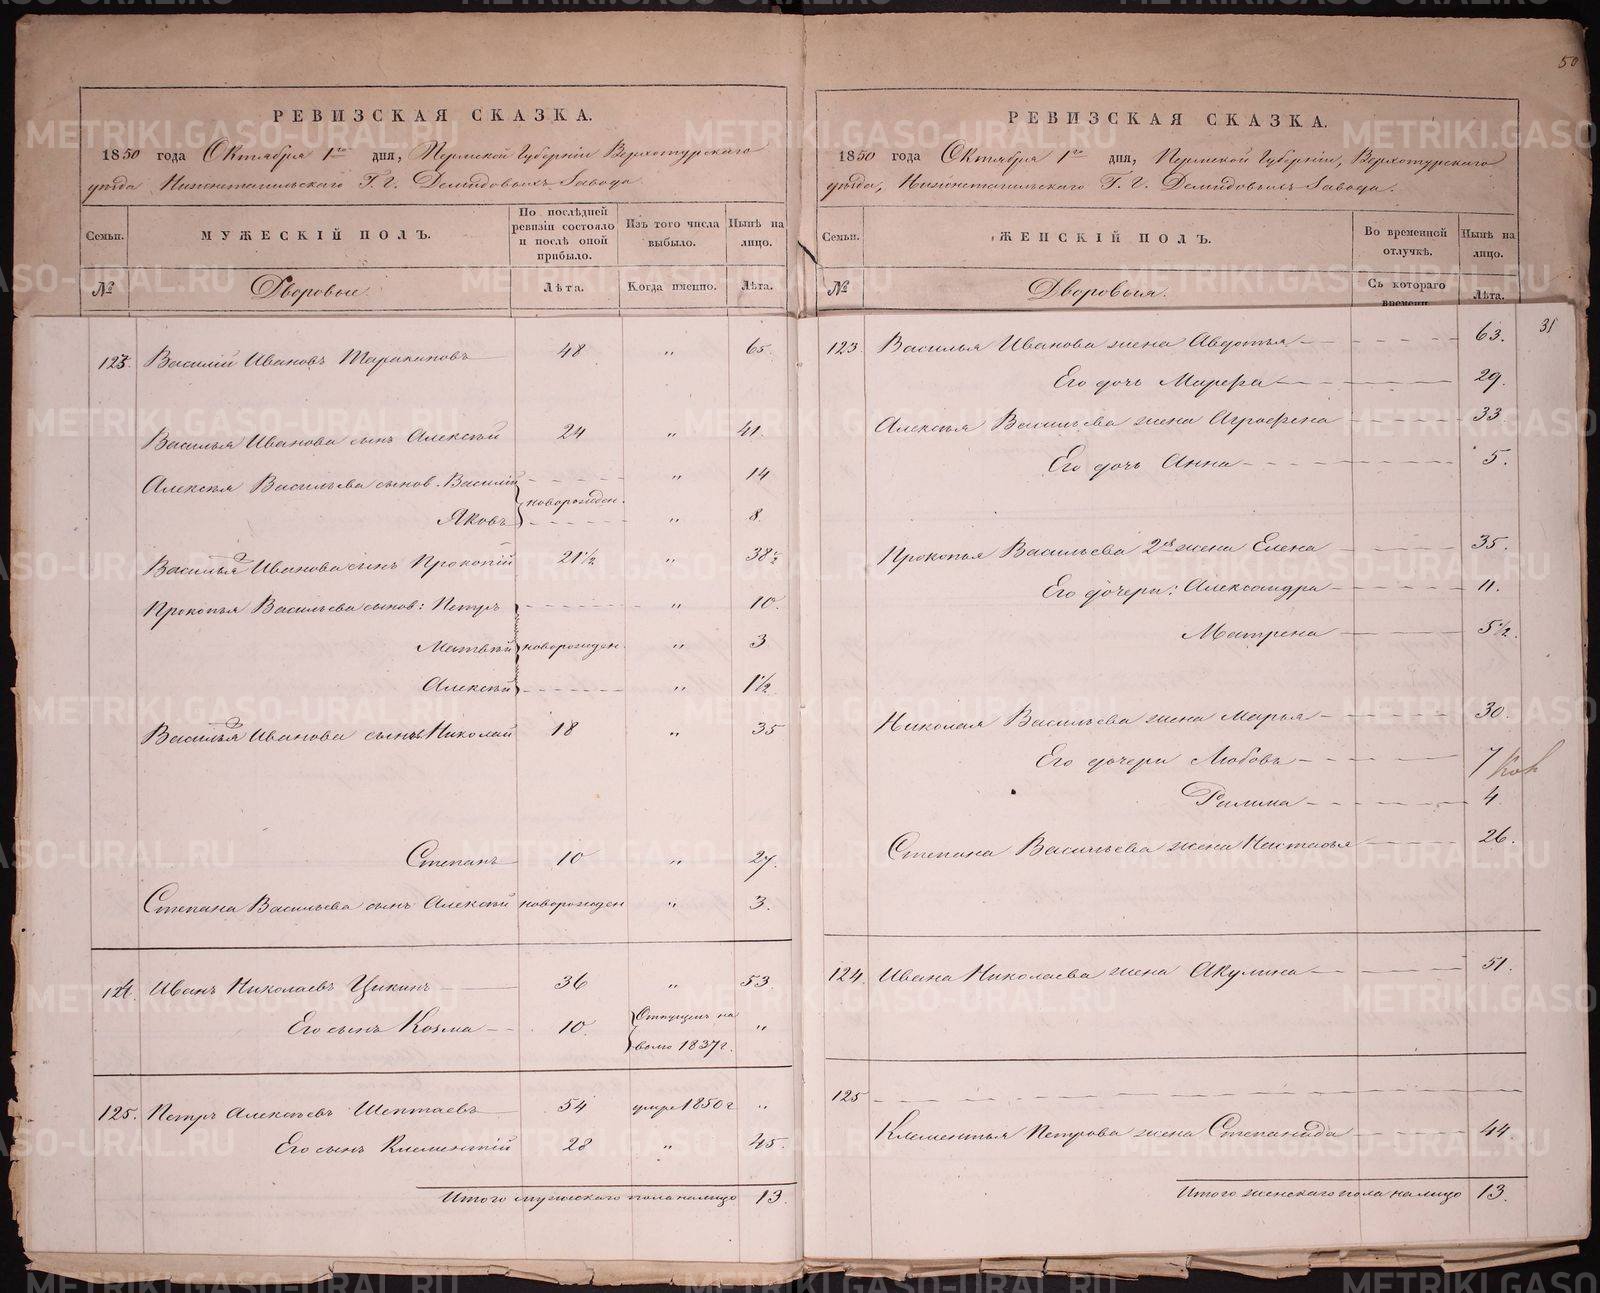 50
РЕВИЗСКАЯ СКАЗКА.
1850 года Октября 1го дня, Пермской Губерніи Верхотурскаго
уѣзда Нижнетагильскаго Г. г. Демидовыхъ Завода.
Семьи.
МУЖЕСКІЙ ПОЛЪ.
По послѣдней ревизіи состояло и послѣ оной прибыло.
Изъ того числа выбыло.
Нынѣ на лицо.
№
Дворовые.
Лѣта.
Когда именно.
Лѣта.
123. Василій Ивановъ Тараканов 48 " 65.
Василья Иванова сынъ Алексѣй 24 " 41.
Алексѣя Васильева сынов. Василій " 14
новорожден.
Яковъ " 8.
Василья Иванова сынъ Прокопій 21½ " 38½
Прокопья Васильева сынов: Петръ " 10.
Матвѣй новорожден. " 3
Алексѣй " 1½
Василья Иванова сынъ Николай 18 " 35
Степанъ 10 " 27.
Степана Васильева сынъ Алексѣй новорожден " 3.
124. Иванъ Николаевъ Цикинъ 36 " 53.
Его сынъ Козма 10. Отпущенъ на "
волю 1837 г.
125. Петръ Алексѣевъ Шептаевъ 54 умре 1850 г "
Его сынъ Клементій 28 " 45.
Итого мужескаго пола на лицо 13.
РЕВИЗСКАЯ СКАЗКА.
1850 года Октября 1го дня, Пермской Губерніи, Верхотурскаго
уѣзда, Нижнетагильскаго Г. г. Демидовыхъ Завода.
Семьи.
ЖЕНСКІЙ ПОЛЪ.
Во временной отлучкѣ.
Нынѣ на лицо.
№
Дворовыя.
Съ котораго времени
Лѣта.
31
123. Василья Иванова жена Авдотья 63.
Его дочь Марфа 29.
Алексѣя Васильева жена Аграфена 33
Его дочь Анна 5.
Прокопья Васильева 2я жена Елена 35.
Его дочери: Александра 11.
Матрена 5½.
Николая Васильева жена Марья 30.
Его дочери Любовь 7
4.
Степана Васильева жена Настасья 26.
124. Ивана Николаева жена Акулина 51.
125
Клементья Петрова жена Степанида 44.
Итого женскаго пола на лицо 13.
METRIKI.GASO-URAL.RU